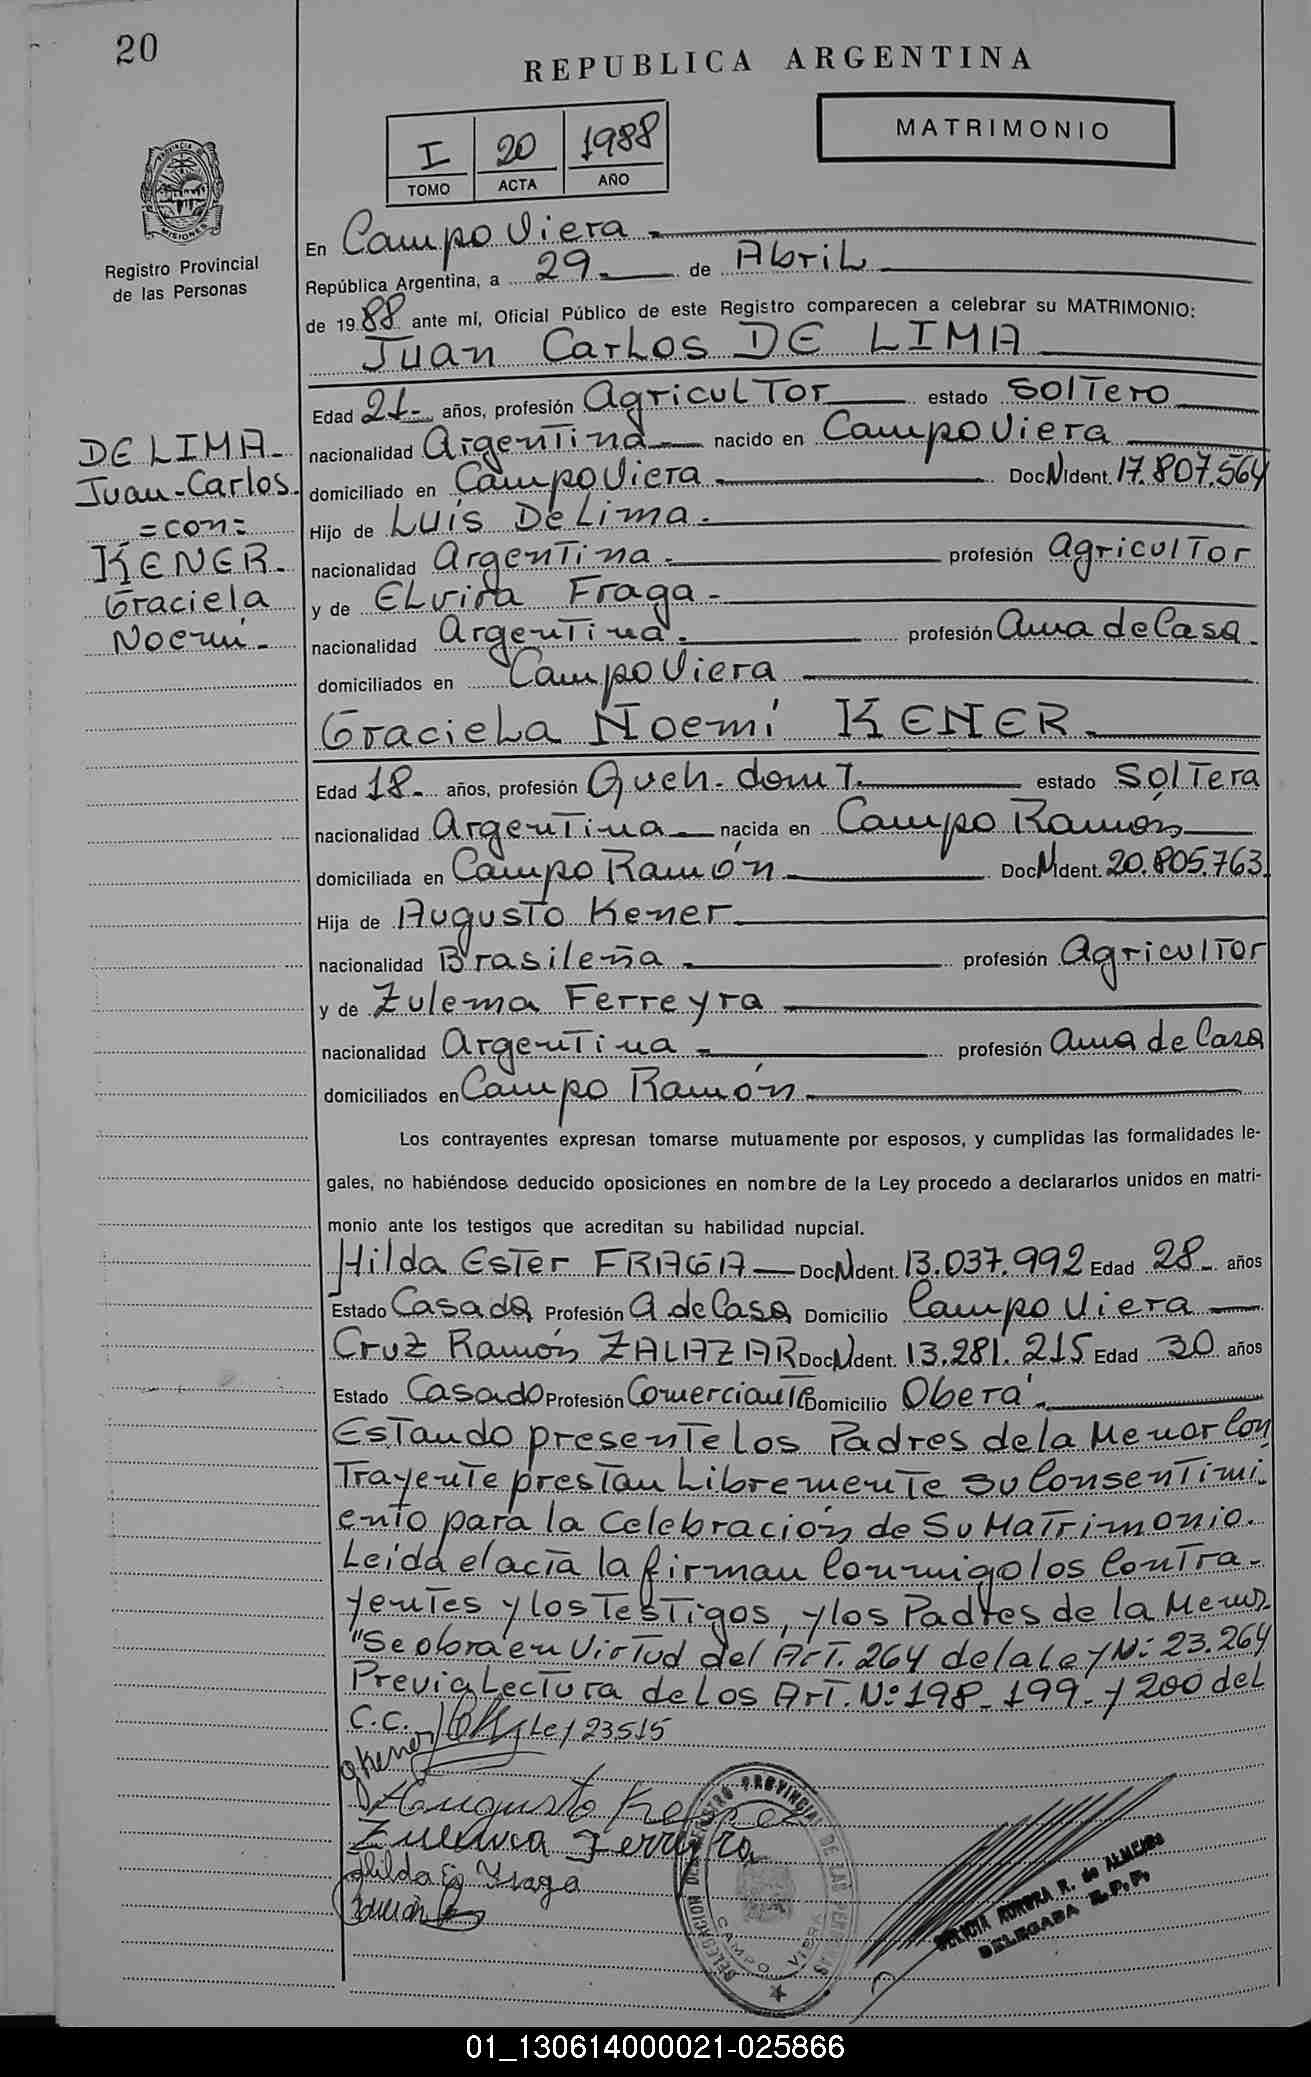 20
REPUBLICA ARGENTINA
MATRIMONIO
I 20 1988
TOMO ACTA AÑO
PROVINCIA DE
MISIONES
Registro Provincial
de las Personas
En Campo Viera
República Argentina, a 29 de Abril
de 1988 ante mí, Oficial Público de este Registro comparecen a celebrar su MATRIMONIO:
Juan Carlos DE LIMA
Edad 21 años, profesión Agricultor estado Soltero
nacionalidad Argentina nacido en Campo Viera
domiciliado en Campo Viera Doc. N Ident. 17.807.564
Hijo de Luis De Lima
nacionalidad Argentina profesión Agricultor
y de Elvira Fraga
nacionalidad Argentina profesión Ama de Casa
domiciliados en Campo Viera
DE LIMA
Juan-Carlos
=con=
KENER
Graciela
Noemí
Graciela Noemí KENER
Edad 18 años, profesión Queh. domt. estado Soltera
nacionalidad Argentina nacida en Campo Ramón
domiciliada en Campo Ramón Doc. N Ident. 20.805.763
Hija de Augusto Kener
nacionalidad Brasileña profesión Agricultor
y de Zulema Ferreyra
nacionalidad Argentina profesión Ama de Casa
domiciliados en Campo Ramón
Los contrayentes expresan tomarse mutuamente por esposos, y cumplidas las formalidades le-
gales, no habiéndose deducido oposiciones en nombre de la Ley procedo a declararlos unidos en matri-
monio ante los testigos que acreditan su habilidad nupcial.
Hilda Ester FRAGA Doc. N Ident. 13.037.992 Edad 28 años
Estado Casada Profesión A de Casa Domicilio Campo Viera
Cruz Ramón ZALAZAR Doc. N Ident. 13.281.215 Edad 30 años
Estado Casado Profesión Comerciante Domicilio Oberá
Estando presente los Padres de la Menor Con
Trayente prestan Libremente su Consentimi
ento para la Celebración de Su Matrimonio.
Leida el acta la firman Conmigo los Contra-
yentes y los Testigos, y los Padres de la Menor
"Se obra en Virtud del Art. 264 de la Ley Nº 23.264
Previa Lectura de Los Art. Nº 198-199- y 200 del
C.C. Ley 23515
gKener
Augusto Kener
Zulema Ferreyra
Hilda E Fraga
DELEGACION DEL REGISTRO PROVINCIAL DE LAS PERSONAS
CAMPO VIERA
AURORA R. de ALMEIDA
DELEGADA R.P.P.
01_130614000021-025866